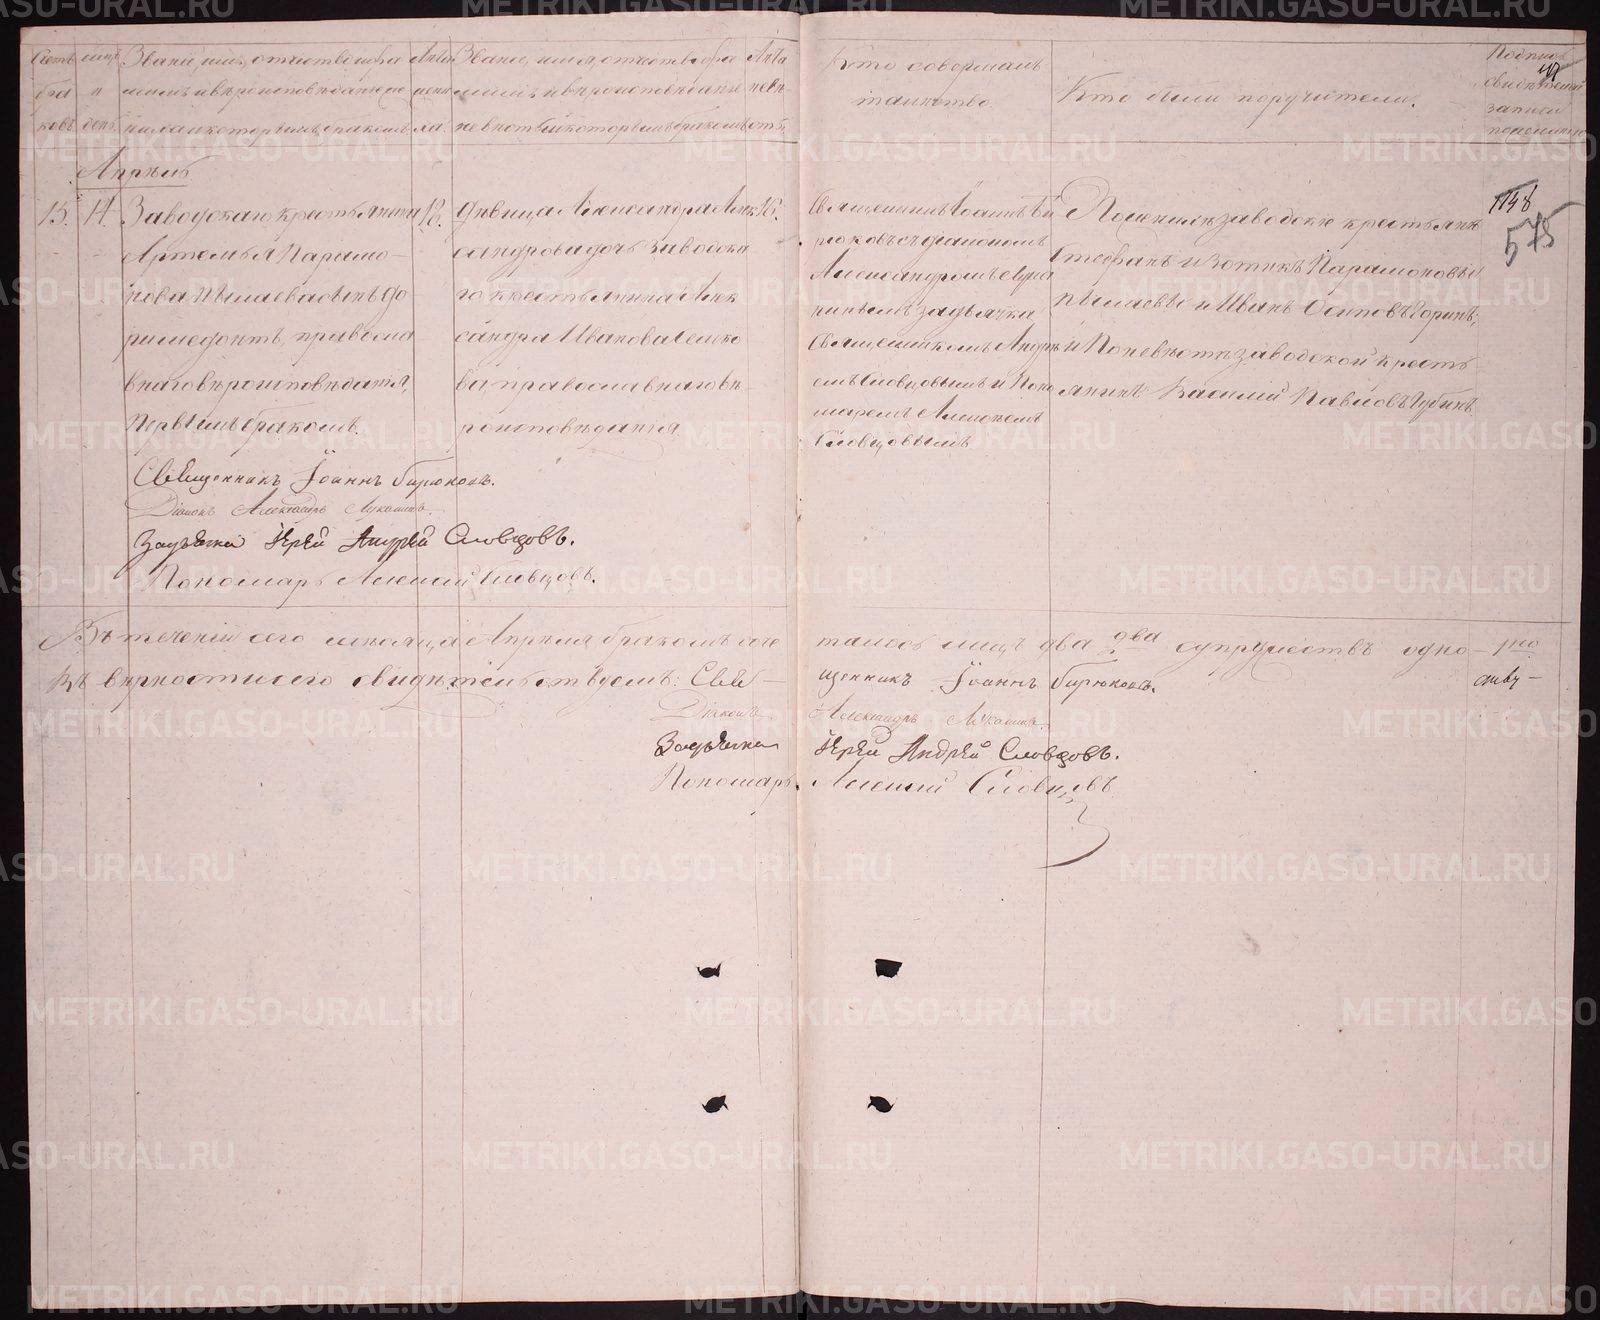 Счетъ
бра
ковъ
мцъ
и
день
Званіе, имя, отчество фа
милія и вѣроисповѣданіе же
ниха и которымъ бракомъ
Лѣта
жени
ха.
Званіе, имя, отчество, фа
милія и вѣроисповѣданіе
невѣсты и которымъ бракомъ
Лѣта
невѣ
сты.
Кто совершалъ
таинство
Кто были поручители.
Подпись
свидѣтелей
записи
по желанію
Апрѣль
15. 14.
Заводскаго крестьянина
Артемья Парамо-
нова Пылаева сынъ До-
римедонтъ, правосла
внаго вѣроисповѣданія,
первымъ бракомъ.
18.
Дѣвица Александра Алек
сандрова дочь заводска
го крестьянина Алек
сандра Иванова
православнаго вѣ-
роисповѣданія
16.
Священникъ Іоаннъ Би
рюковъ съ діакономъ
Александромъ Лука
нинымъ за дьячка
Священникомъ Андре
емъ Словцовымъ и Поно
маремъ Алексѣемъ
Словцовымъ
По женихѣ заводскіе крестьяне
Стефанъ и Зотикъ Парамоновы
Пылаевы и Иванъ Осиповъ Зоринъ;
и По невѣстѣ заводской кресть
янинъ Василій Павловъ Губинъ
1148
575
Священникъ Іоаннъ Бирюковъ.
Діаконъ Александръ Луканинъ.
За дьячка Іерей Андрей Словцовъ.
Пономарь Алексѣй Словцовъ.
Въ теченіи сего мѣсяца Апрѣля бракомъ соче
талось лицъ два 2 два супружествъ одно
Въ вѣрности сего свидѣтельствуемъ: Свя-
щенникъ Іоаннъ Бирюковъ.
Діаконъ Александръ Луканинъ
За дьячка Іерей Андрей Словцовъ.
Пономарь Алексѣй Словцовъ
METRIKI.GASO-URAL.RU